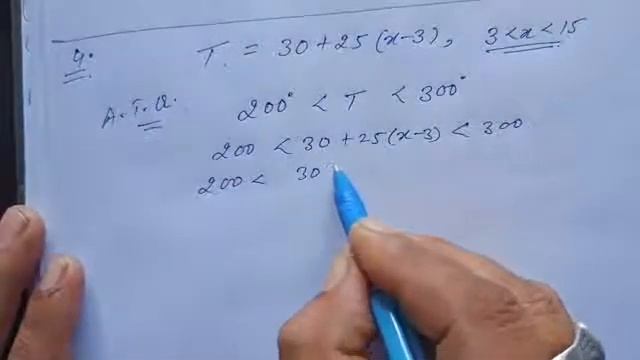 9. T. = 30 + 25 (x-3), 3 < x < 15
A.T.Q. 200° < T < 300°
200 < 30 + 25(x-3) < 300
200 < 30